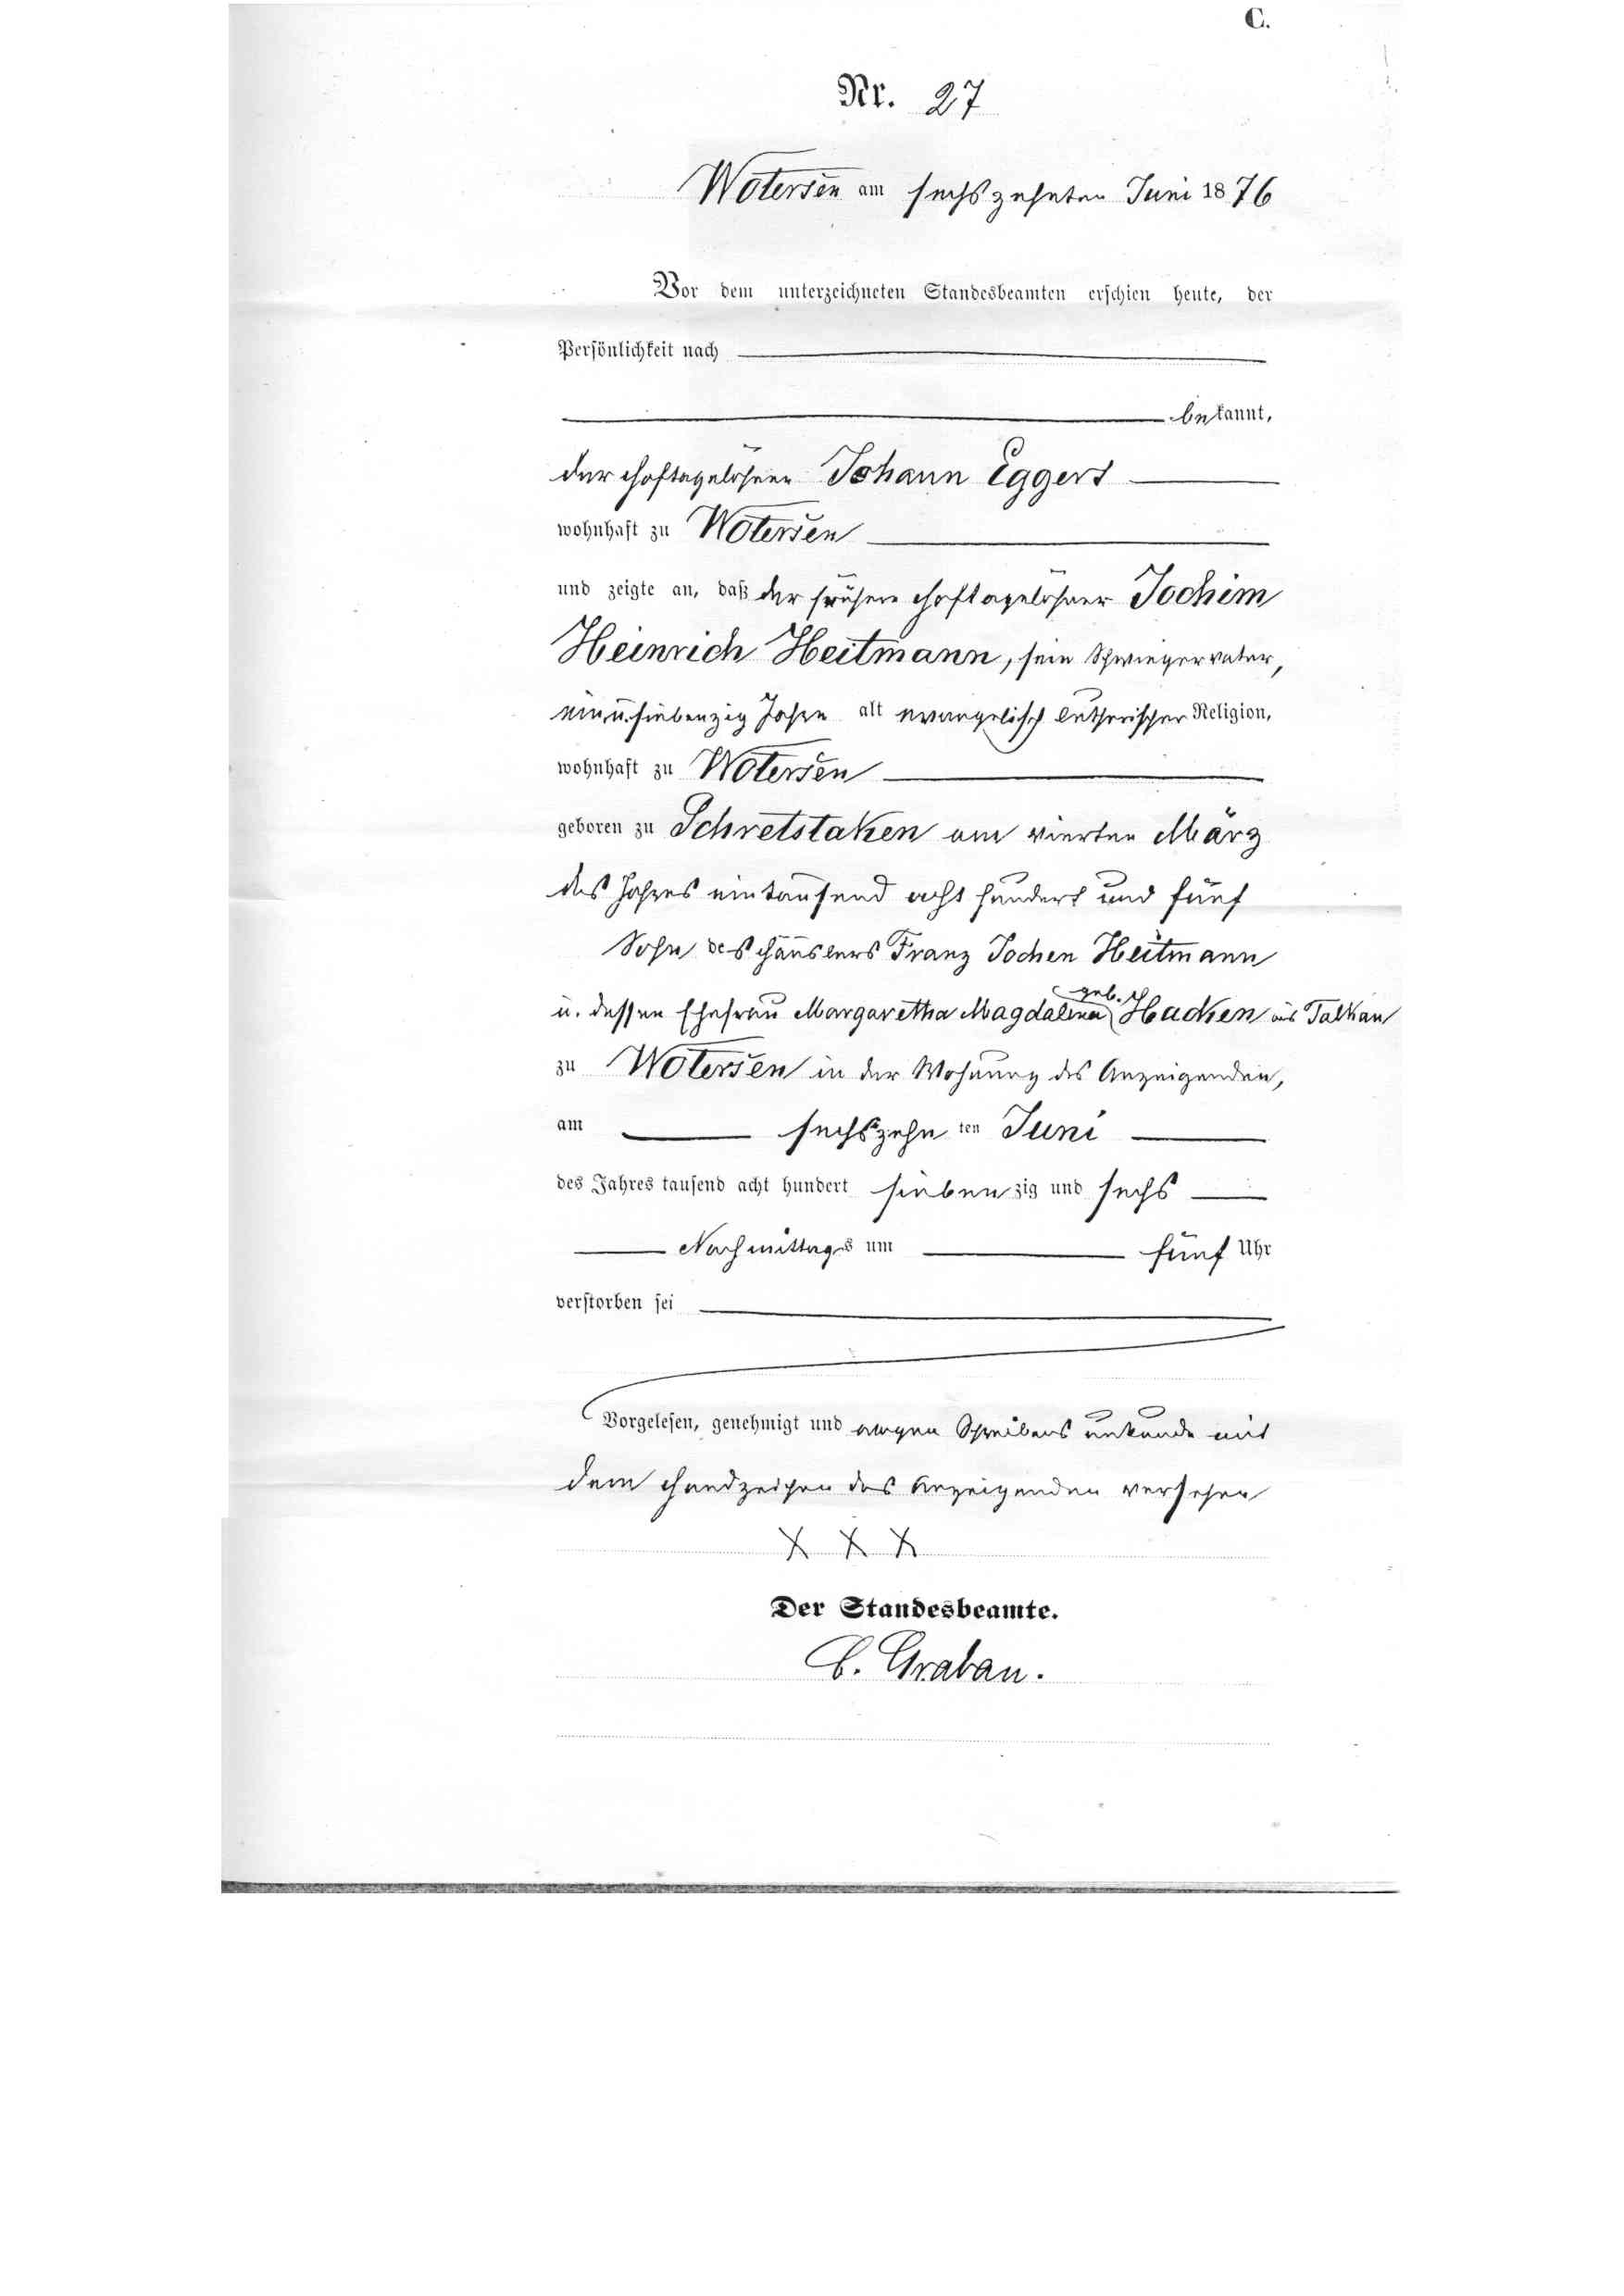 C.
Nr. 27
Wotersen am sechszehnten Juni 1876
Vor dem unterzeichneten Standesbeamten erschien heute, der
Persönlichkeit nach
bekannt,
der Hoftagelöhner Johann Eggers
wohnhaft zu Wotersen
und zeigte an, daß der frühere Hoftagelöhner Jochim
Heinrich Heitmann, sein Schwiegervater,
ein u. siebenzig Jahre alt evangelisch lutherischer Religion,
wohnhaft zu Wotersen
geboren zu Schretstaken am vierten März
des Jahres eintausend acht hundert und fünf
Sohn des Häuslers Franz Jochen Heitmann
u. dessen Ehefrau Margaretha Magdalena geb. Hacken aus Talkau
zu Wotersen in der Wohnung des Anzeigenden,
am sechszehnten Juni
des Jahres tausend acht hundert siebenzig und sechs
Nachmittags um fünf Uhr
verstorben sei
Vorgelesen, genehmigt und wegen Schreibens unkunde mit
dem Handzeichen des Anzeigenden versehen
X X X
Der Standesbeamte.
C. Grabau.